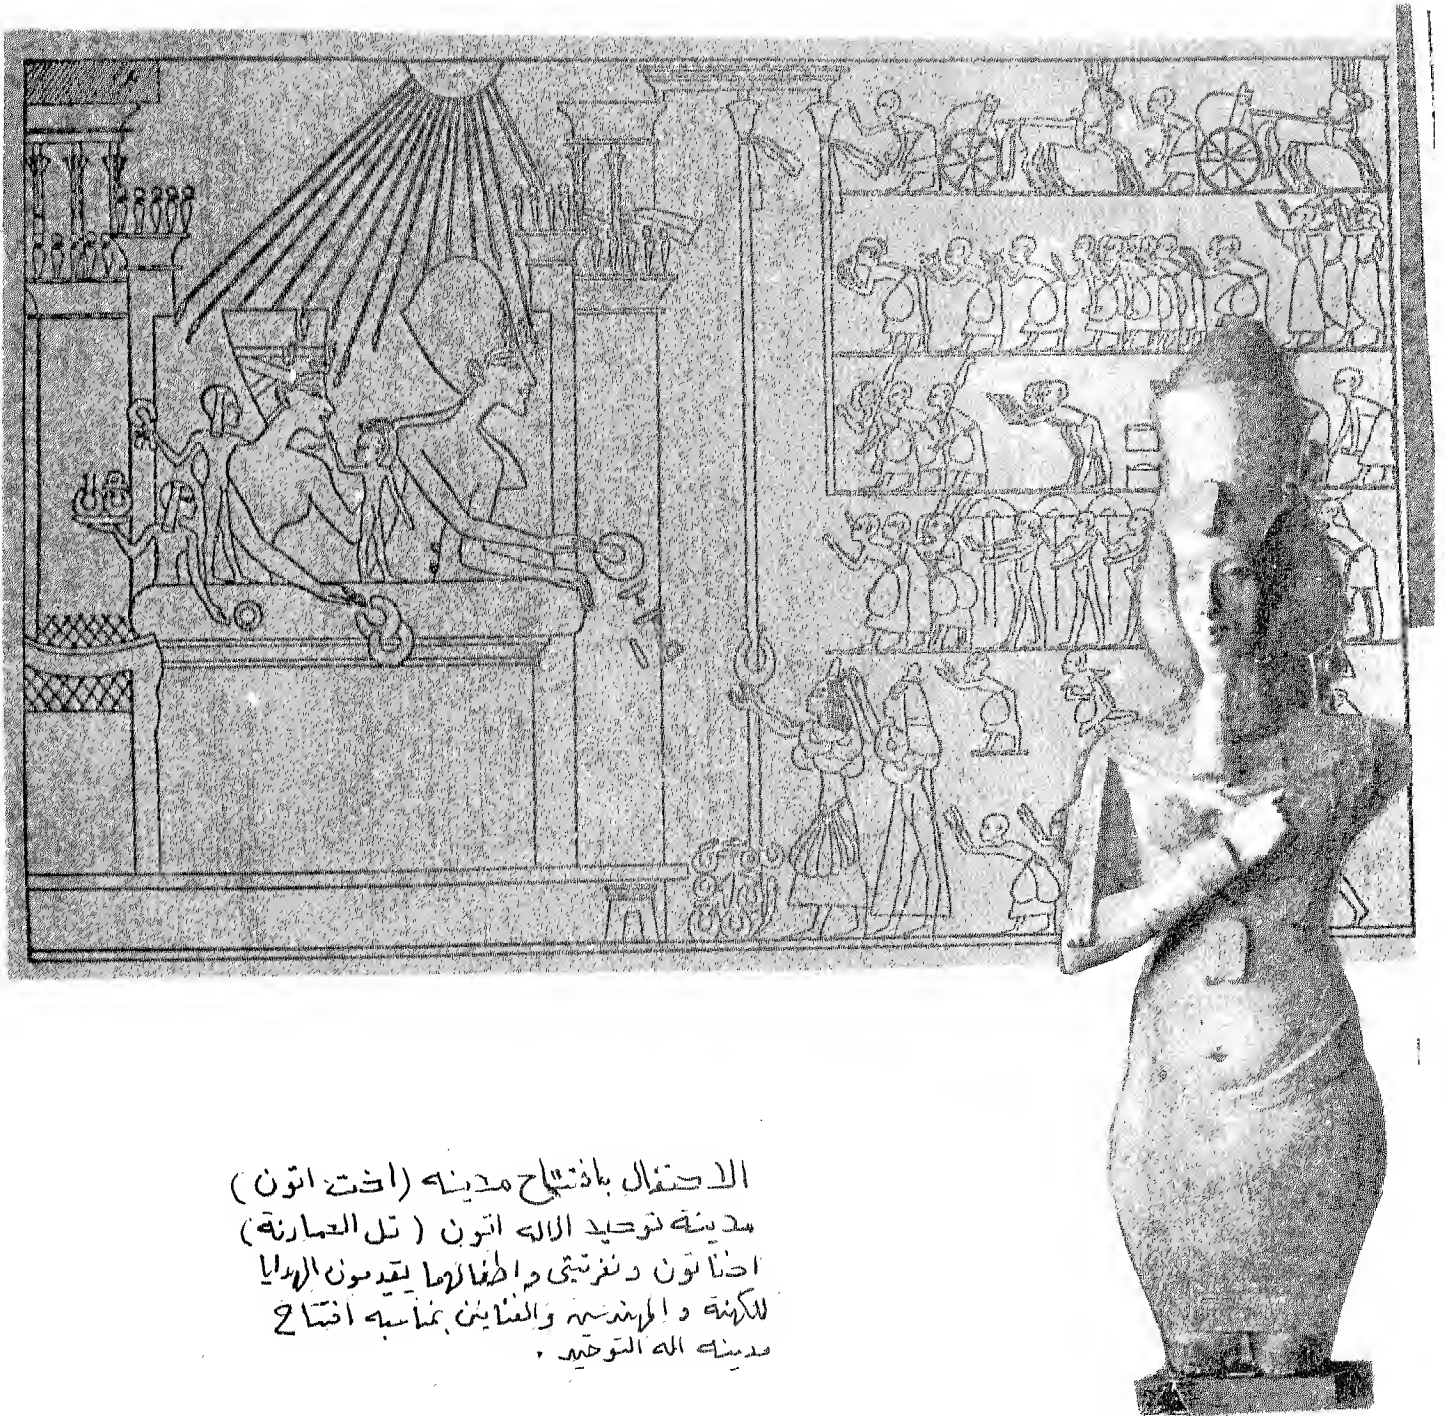 الاحتفال بافتتاح مدينه (اخت اتون)
مدينة توحيد الاله اتون (تل العمارنة)
اخناتون ونفرتيتى واطفالهما يقدمون الهدايا
للكهنة والمهندسين والفنانين بمناسبه افتتاح
مدينه اله التوحيد .